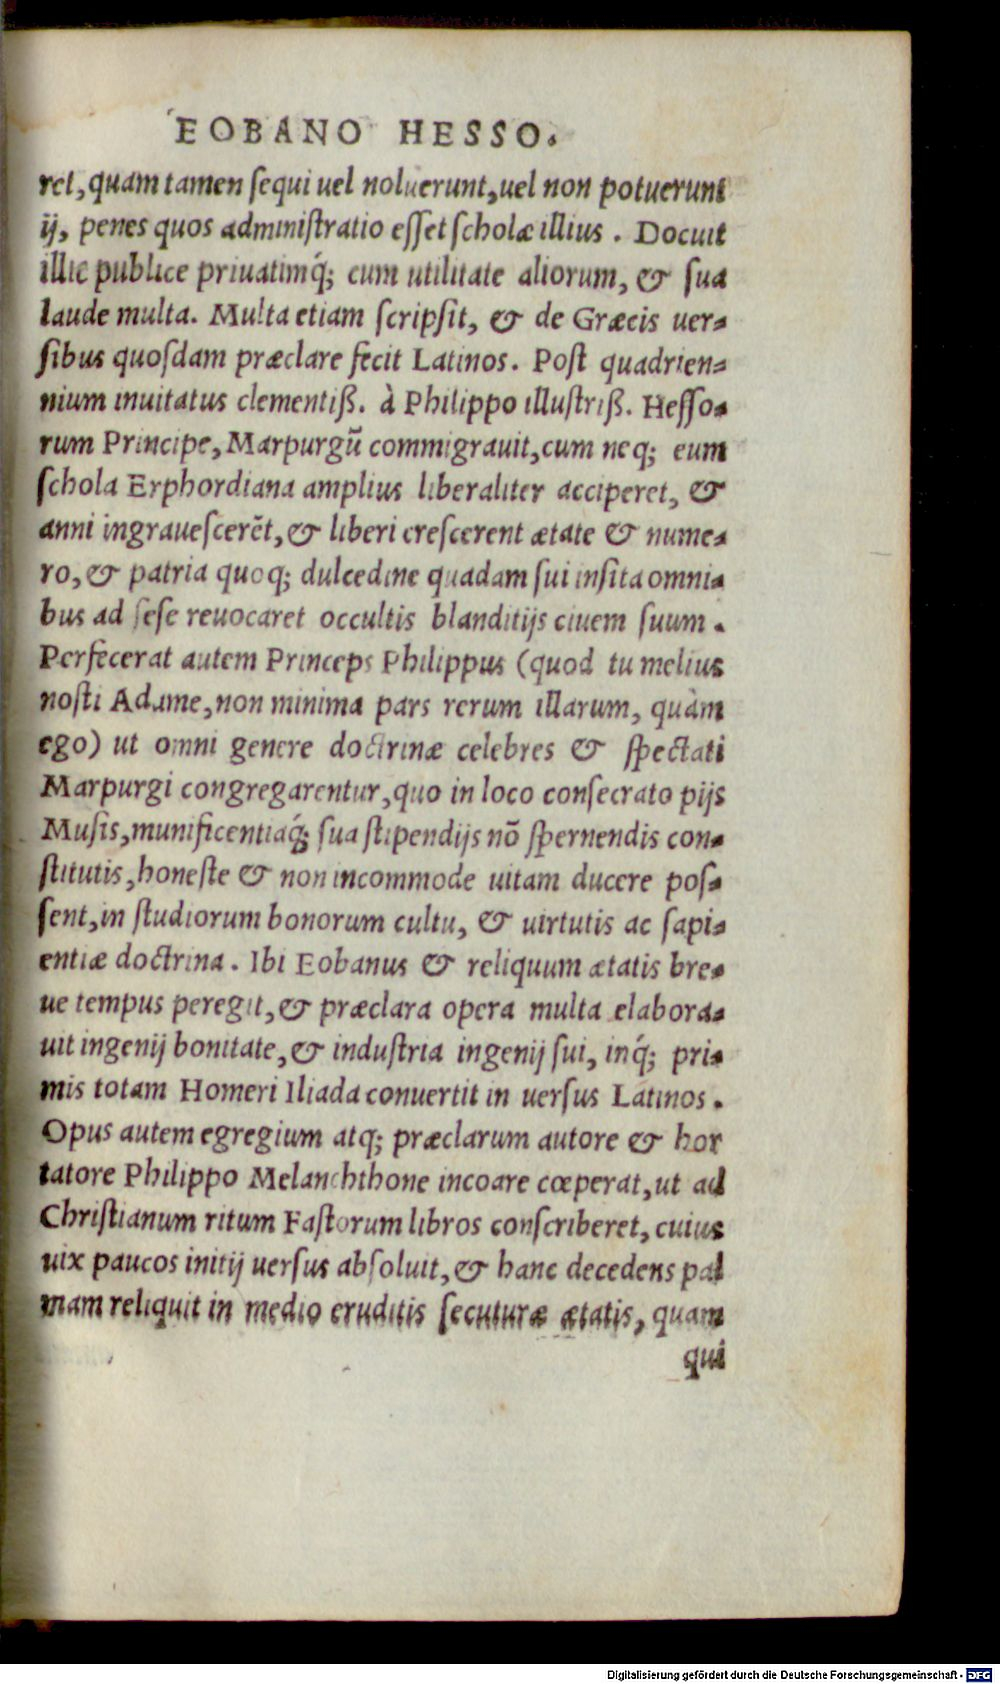 EOBANO HESSO.
ret, quam tamen ſequi uel noluerunt, uel non potuerunt
ij, penes quos adminiſtratio eſſet ſcholæ illius . Docuit
illic publice priuatimq́; cum utilitate aliorum, & ſua
laude multa. Multa etiam ſcripſit, & de Græcis uer-
ſibus quoſdam præclare fecit Latinos. Poſt quadrien-
nium inuitatus clementiß. à Philippo illuſtriß. Heſſo-
rum Principe, Marpurgū commigrauit, cum neq; eum
ſchola Erphordiana amplius liberaliter acciperet, &
anni ingraueſcerēt, & liberi creſcerent ætate & nume-
ro, & patria quoq; dulcedine quadam ſui inſita omni-
bus ad ſeſe reuocaret occultis blanditijs ciuem ſuum .
Perfecerat autem Princeps Philippus (quod tu melius
noſti Adame, non minima pars rerum illarum, quàm
ego) ut omni genere doctrinæ celebres & ſpectati
Marpurgi congregarentur, quo in loco conſecrato pijs
Muſis, munificentiaq́; ſua ſtipendijs nō ſpernendis con-
ſtitutis, honeſte & non incommode uitam ducere poſ-
ſent, in ſtudiorum bonorum cultu, & uirtutis ac ſapi-
entiæ doctrina . Ibi Eobanus & reliquum ætatis bre-
ue tempus peregit, & præclara opera multa elabora-
uit ingenij bonitate, & induſtria ingenij ſui, inq́; pri-
mis totam Homeri Iliada conuertit in uerſus Latinos .
Opus autem egregium atq; præclarum autore & hor
tatore Philippo Melanchthone incoare cœperat, ut ad
Chriſtianum ritum Faſtorum libros conſcriberet, cuius
uix paucos initij uerſus abſoluit, & hanc decedens pal
mam reliquit in medio eruditis ſecuturæ ætatis, quam
qui
Digitalisierung gefördert durch die Deutsche Forschungsgemeinschaft - DFG